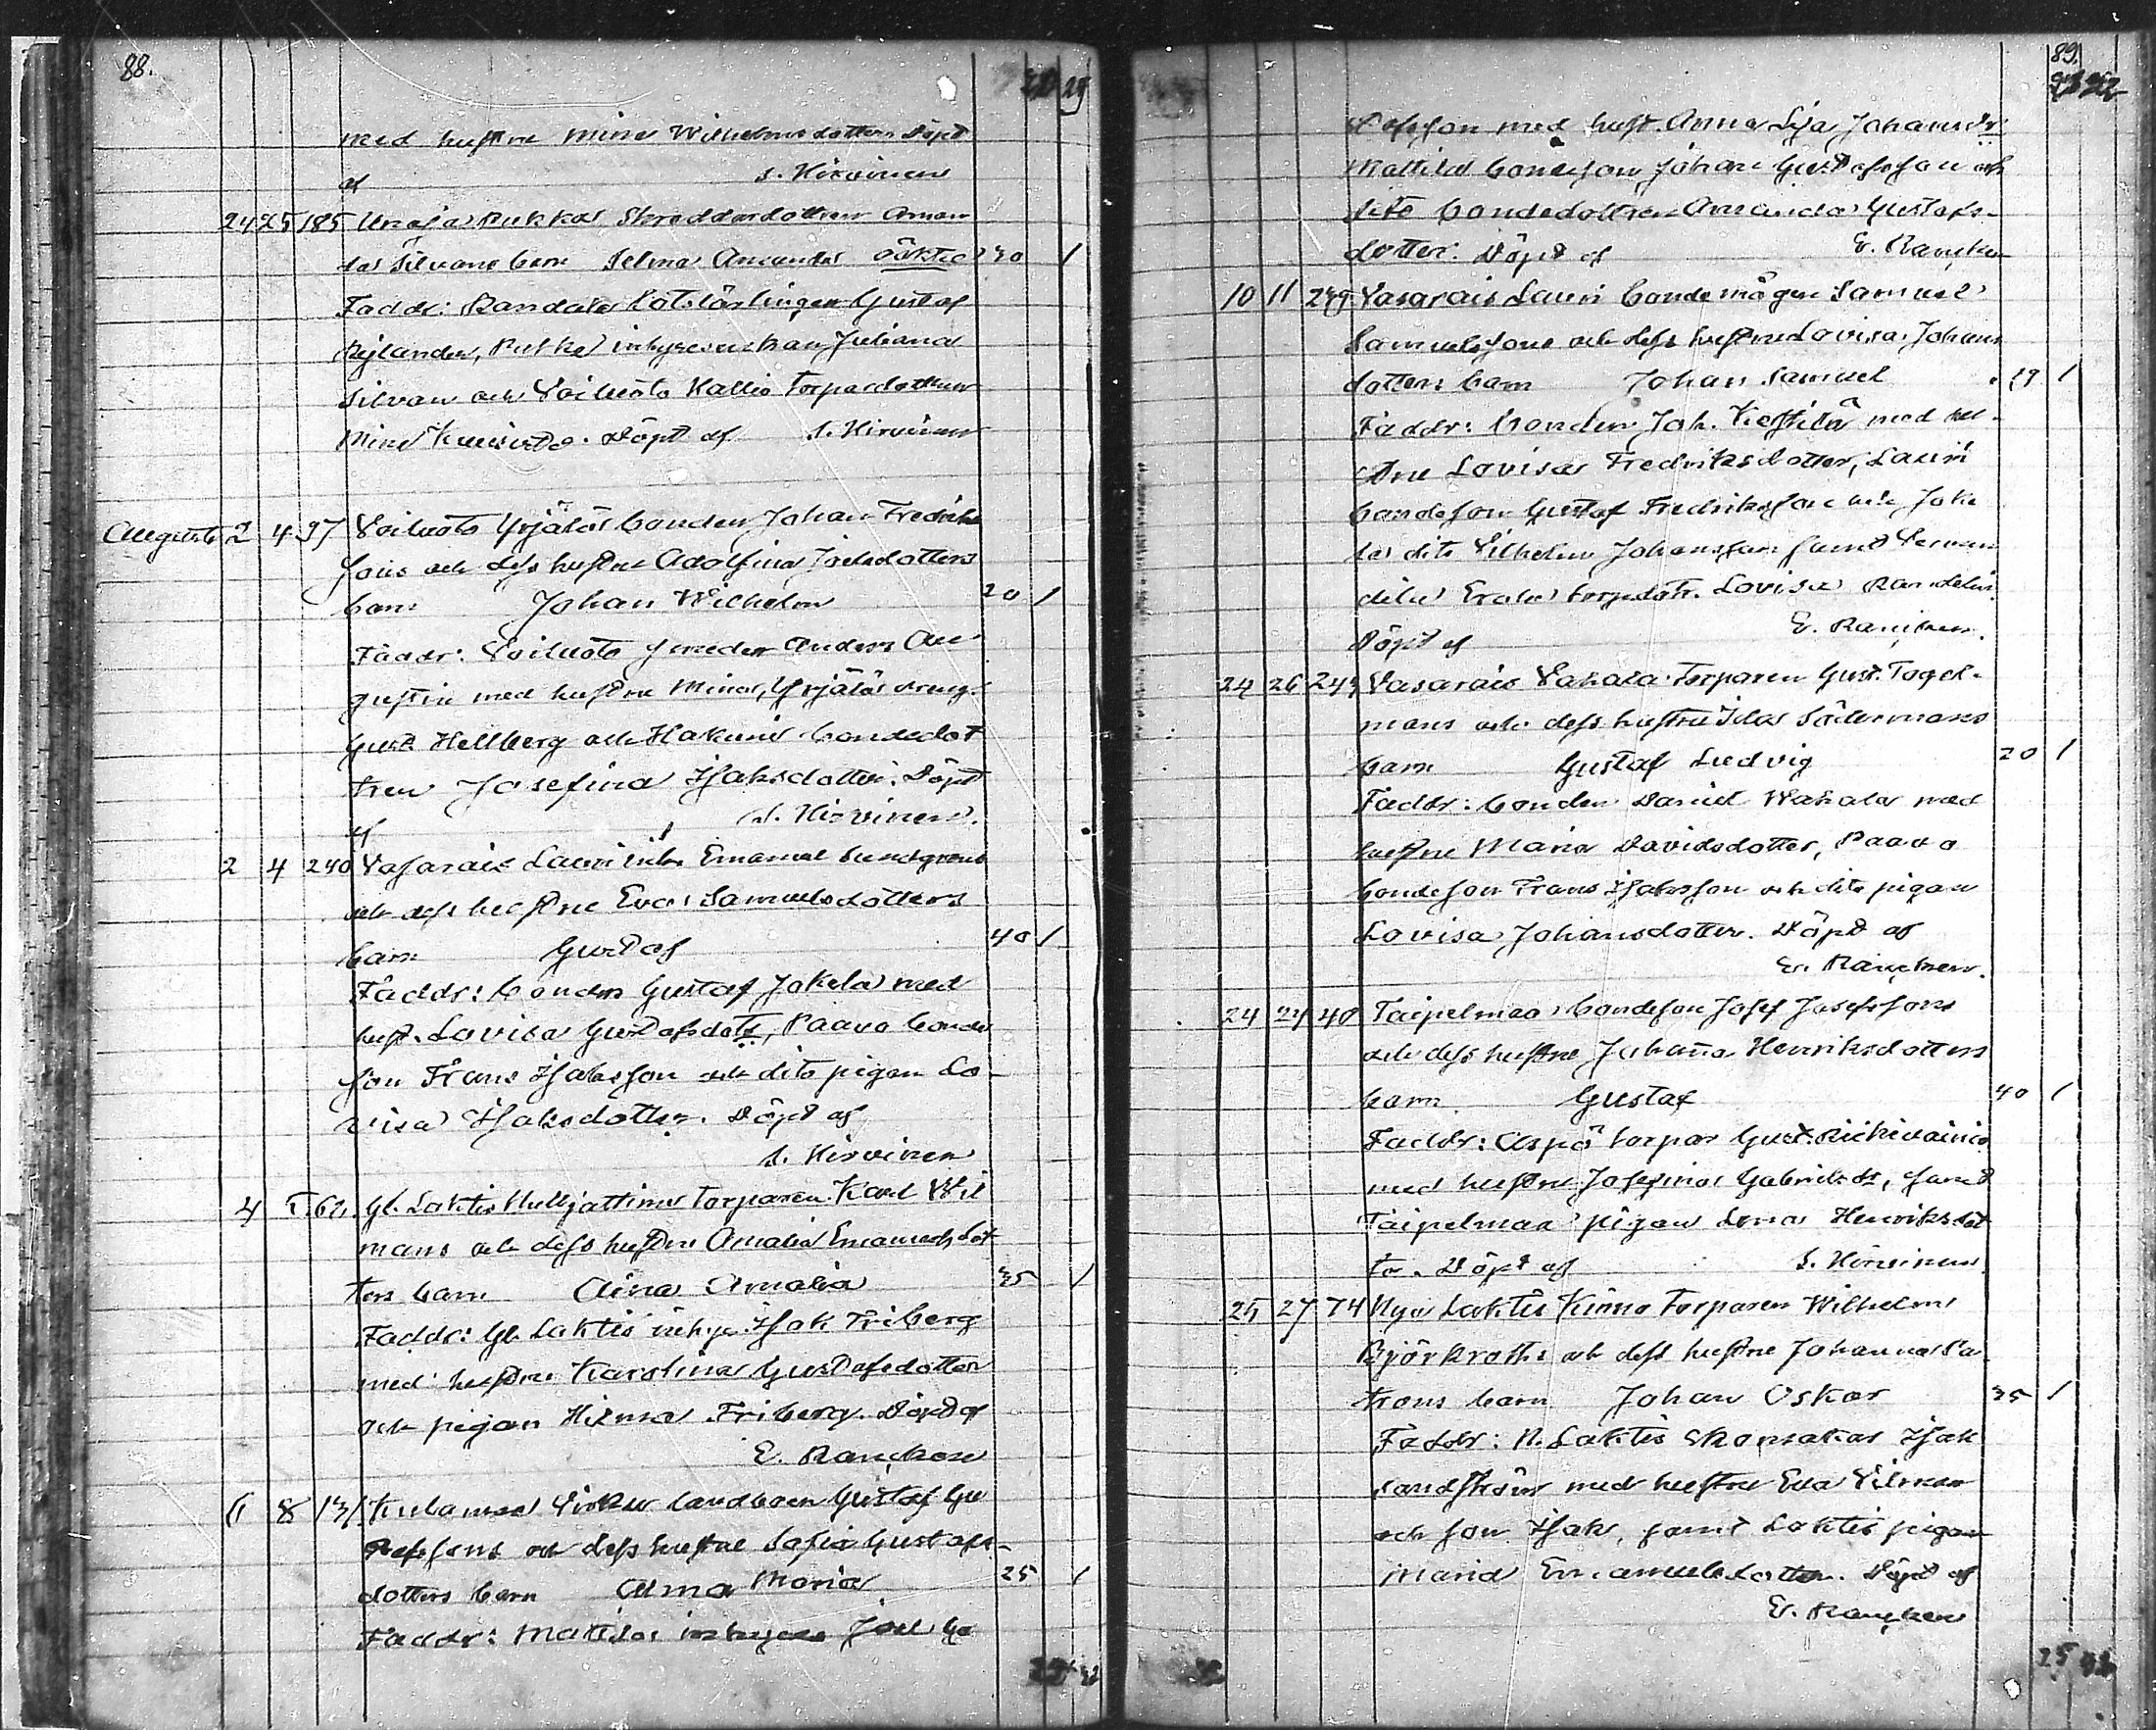 88.
29
med hustru Mina Wilhelmsdotter. Döpt
af S. Hirvinen
24 25 185 Unaja Pukkas Skreddardottren Aman
das Silvans barn Selma Amanda oäkta 30 1
Faddr: Randala Lotslärlingen Gustaf
Rylander, Pukka inhyseskan Juliana
Silvan och Voiluoto Kallio Torpardottren
Mina Döpt af S. Hirvinen
Augusti 2 4 97 Voiluoto Yrjälä bonden Johan Fredriks
sons och dess hustru Adolfina Joelsdotters
barn Johan Wilhelm 20 1
Faddr: Voiluoto smeden Anders Au
gustin med hustru Mina, Yrjälä dreng.
Gust. Hellberg och Hakuni bondedot
tren Josefina Isaksdotter. Döpt
af S. Hirvinen.
2 4 240 Vasarais Lauri inh. Emanuel Sundgrens
och dess hustru Eva Samuelsdotters
barn Gustaf 40 1
Faddr: bonden Gustaf Jakela med
hust. Lovisa Gustafsdotr, Paavo bonde
son Frans Isaksson och dito pigan Lo-
visa Isaksdotter. Döpt af
S. Hirvinen
4 5 62 Gl. Laktis Torparen Karl Wil
mans och dess hustru Amalia Emanuelsdot
ters barn Aina Amalia 35 1
Faddr: Gl. Laktis inhys. Isak Friberg
med hustru Karolina Gustafsdotter
och pigan Hilma Friberg. Döpt af
E. Rancken
6 8 131 landbon Gustaf Gu
stafssons och dess hustru Sofia Gustafs-
dotters barn Alma Maria 25 1
Faddr: Matila inhyses Joel Gu
89.
stafsson med hust. Anna Lisa Johansdr
Mattila bondeson Johan Gustafsson och
dito bondedottren Amanda Gustafs-
dotter. Döpt af E. Rancken
10 11 249 Vasarais Lauri bondemågen Samuel
Samuelssons och dess hustru Lovisa Johans
dotters barn Johan Samuel 29 1
Faddr: bonden Joh. Kestilä med hu-
stru Lovisa Fredriksdotter, Lauri
bondeson Gustaf Fredriksson och Joke
la dito Vilhelm Johansson samt
Erala torpdotr. Lovisa Randelin.
Döpt af E. Rancken.
24 26 249 Vasarais Vahala Torparen Gust. Fogel-
mans och dess hustru Ida Södermans
barn Gustaf Ludvig 20 1
Faddr: bonden Daniel Wahala med
hustru Maria Davidsdotter, Paavo
bondeson Frans Isaksson och dito pigan
Lovisa Johansdotter. Döpt af
E. Rancken.
24 27 40 Taipelmaa bondeson Josef Josefssons
och dess hustru Johanna Henriksdotters
barn Gustaf 40 1
Faddr: Aspö torpar Gust.
med hustru Josefina Gabrielsdr, samt
Taipelmaa pigan Lena Henriksdot
ter. Döpt af S. Hirvinen
25 27 74 Nya Laktis Kiimo Torparen Wilhelm
Björkroths och dess hustru Johanna Pa
trons barn Johan Oskar 35 1
Faddr: N. Laktis Isak
Sandström med hustru Eva Vilman
och son Isak, samt Laktis pigan
Maria Emanuelsdotter. Döpt af
E. Rancken
25